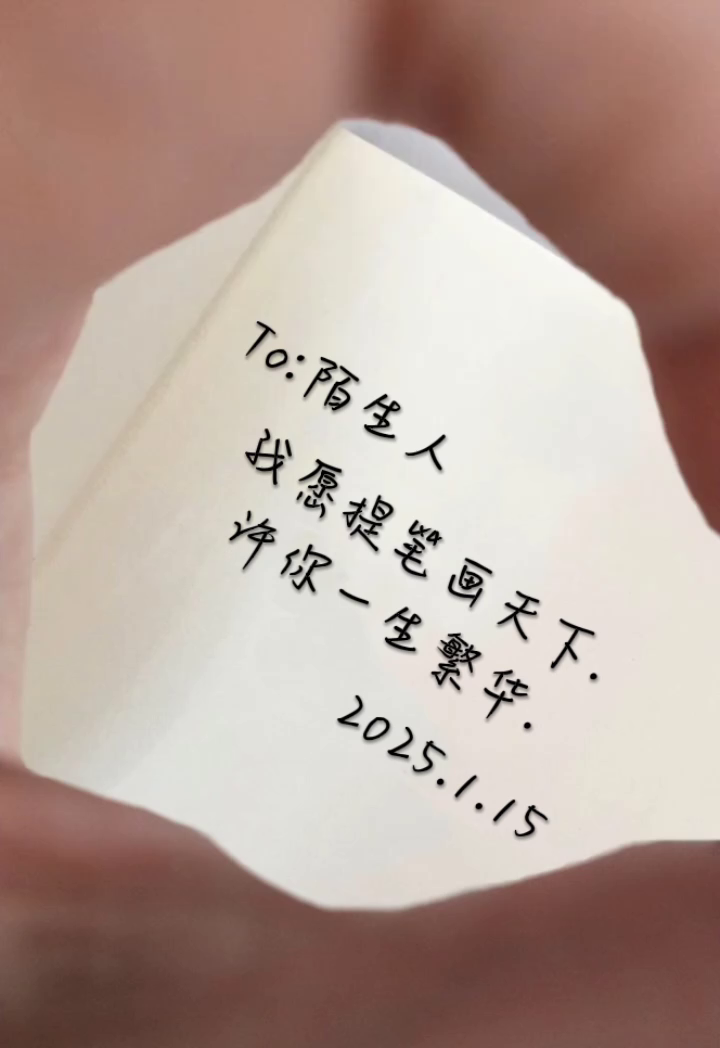 To:陌生人
我愿提笔画天下.
许你一生繁华.
2025.1.15